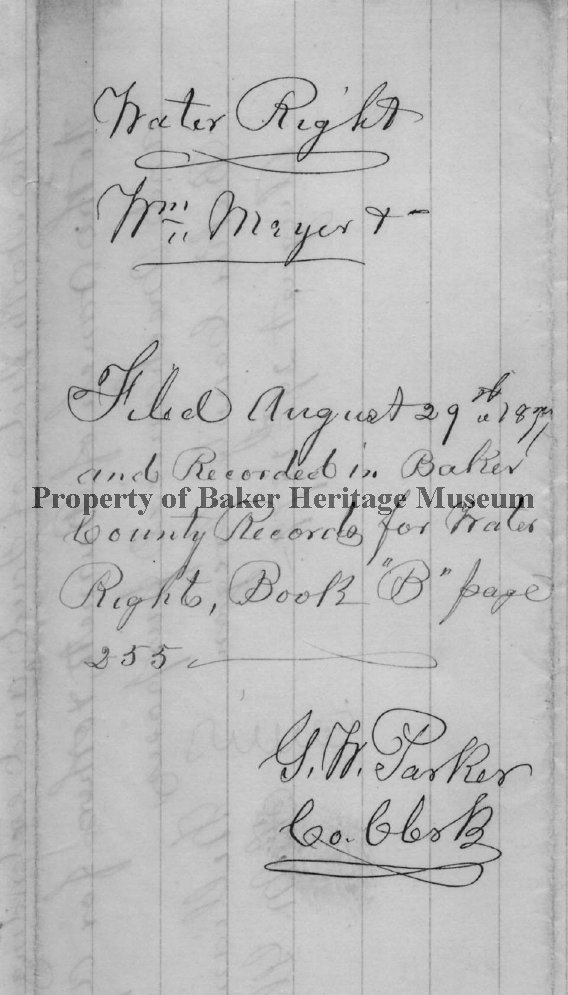 Water Right
Wm Mayer & -
Filed August 29th 18
and Recorded in Baker
Property of Baker Heritage Museum
County Records for Water
Right, Book "B" page
255
G. W. Parker
Co. Clerk